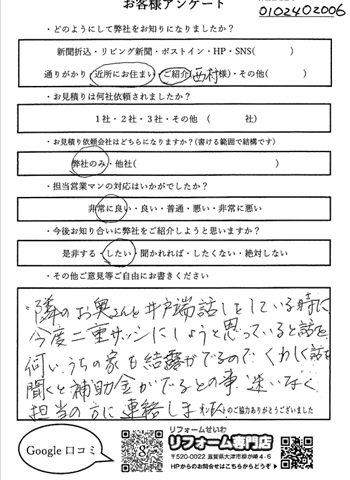 お客様アンケート
0102402006
・どのようにして弊社をお知りになりましたか？
新聞折込・リビング新聞・ポストイン・HP・SNS(　　　)
通りがかり・近所にお住まい・ご紹介(西村様)・その他(　　　)
・お見積りは何社依頼されましたか？
1社・2社・3社・その他　(　　　社)
・お見積り依頼会社はどちらになりますか？(書ける範囲で結構です)
弊社のみ・他社(　　　)
・担当営業マンの対応はいかがでしたか？
非常に良い・良い・普通・悪い・非常に悪い
・今後お知り合いに弊社をご紹介しようと思いますか？
是非する・したい・聞かれれば・したくない・絶対しない
・その他ご意見等ご自由にお書きください
隣のお奥さんと井戸端話しをしている時に
今度二重サッシにしようと思っていると話を
伺い、うちの家も結露がでるので、くわしく話を
聞くと補助金がでるとの事、迷いなく
担当の方に連絡しました
トのご協力ありがとうございました
Google口コミ
リフォームせいわ
リフォーム専門店
〒520-0022 滋賀県大津市柳が崎4-6
HPからのお問合せはこちらからどうぞ